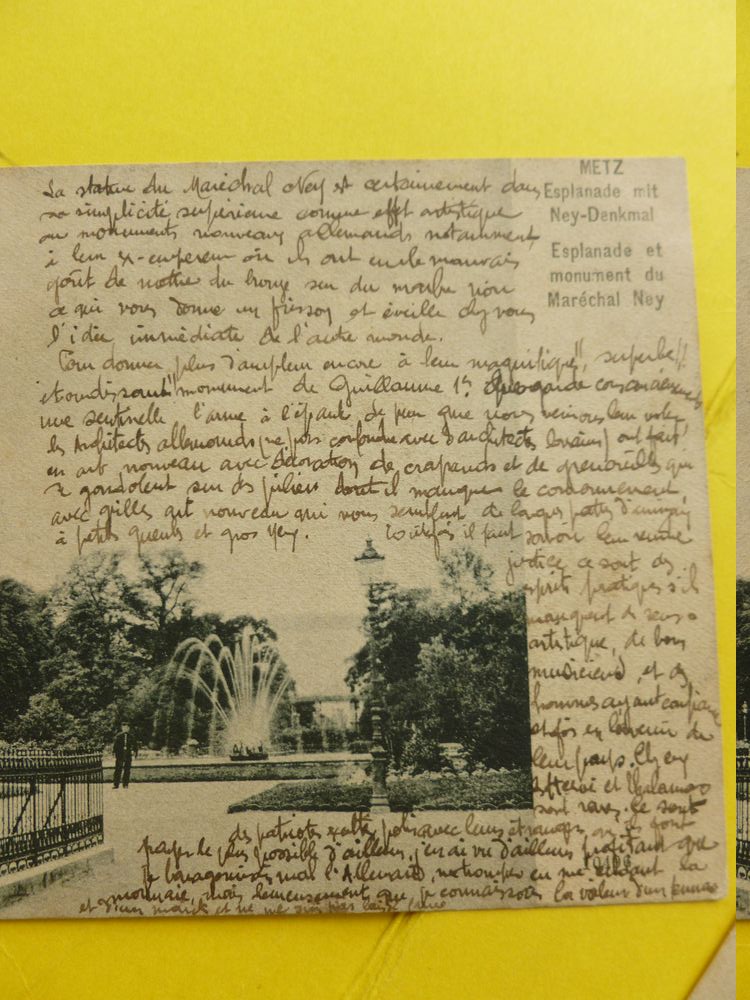 METZ
Esplanade mit
Ney-Denkmal
Esplanade et
monument du
Maréchal Ney
La statue du Maréchal Ney est certainement dans
sa simplicité supérieure comme effet artistique
au monuments nouveaux allemands notamment
à leur ex-empereur où ils ont eu le mauvais
goût de mettre du bronze sur du marbre noir
ce qui vous donne un frisson et éveille chez vous
l'idée immédiate de l'autre monde.
Pour donner plus d'ampleur encore à leur magnifique!, superbe!!
et monument de Guillaume 1er
une sentinelle l'arme à l'épaule de peur que nous venions leur voler
les Architectes allemands (ne pas confondre avec d'architectes lorrains) ont fait
en art nouveau avec décoration de crapauds et de grenouilles qui
se gondolent sur des piliers dont il manque le couronnement,
avec grilles art nouveau qui vous semblent de longues pattes
à petits et gros yeux. Toutefois il faut
savoir leur rendre
justice ce sont des
esprits pratiques s'il
manquent de sens
artistique, de bons
musiciens, et des
hommes ayant confiance
et foi en l'avenir de
leur pays. Chez eux
et
sont rares. Ce sont
des patriotes polis avec leurs étrangers
le plus possible d'ailleurs, j'en ai vu d'ailleurs profitant que
je baragouinais mal l'Allemand, me tromper en me rendant la
monnaie, mais heureusement que je connaissais la valeur d'un
et d'un mark et ne me suis pas laissé faire